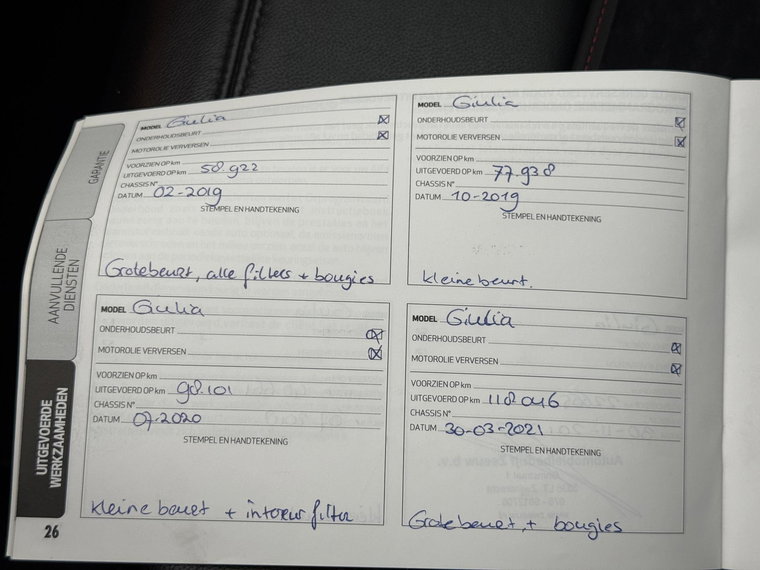 GARANTIE
AANVULLENDE
DIENSTEN
UITGEVOERDE
WERKZAAMHEDEN
26
MODEL Giulia
ONDERHOUDSBEURT
MOTOROLIE VERVERSEN
VOORZIEN OP km
UITGEVOERD OP km 58.922
CHASSIS N°
DATUM 02-2019
STEMPEL EN HANDTEKENING
Grote beurt, alle filters + bougies
MODEL Giulia
ONDERHOUDSBEURT
MOTOROLIE VERVERSEN
VOORZIEN OP km
UITGEVOERD OP km 77.938
CHASSIS N°
DATUM 10-2019
STEMPEL EN HANDTEKENING
kleine beurt.
MODEL Giulia
ONDERHOUDSBEURT
MOTOROLIE VERVERSEN
VOORZIEN OP km
UITGEVOERD OP km 98.101
CHASSIS N°
DATUM 07-2020
STEMPEL EN HANDTEKENING
kleine beurt + interieur filter
MODEL Giulia
ONDERHOUDSBEURT
MOTOROLIE VERVERSEN
VOORZIEN OP km
UITGEVOERD OP km 118.046
CHASSIS N°
DATUM 30-03-2021
STEMPEL EN HANDTEKENING
Grote beurt, + bougies